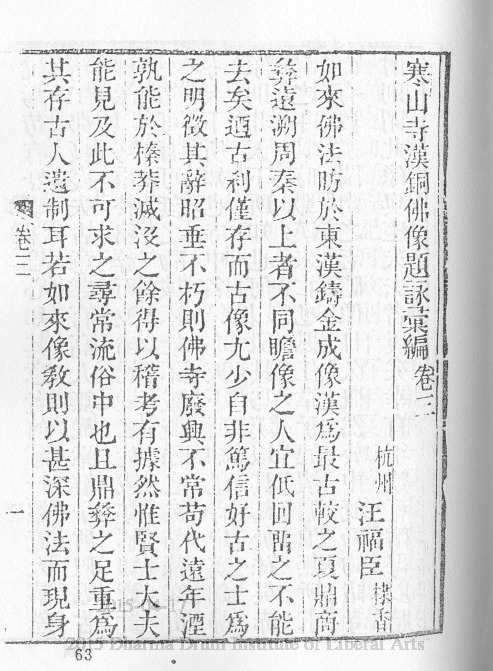 寒山寺漢銅佛像題詠彙編卷三
杭州
汪福臣
棣香
如來佛法昉於東漢鑄金成像漢爲最古較之夏鼎商
彝遠溯周秦以上者不同瞻像之人宜低回畱之不能
去矣迺古刹僅存而古像尢少自非篤信好古之士爲
之明徵其辭昭垂不朽則佛寺廢興不常苟代遠年湮
孰能於榛莽滅沒之餘得以稽考有據然惟賢士大夫
能見及此不可求之尋常流俗中也且鼎彝之足重爲
其存古人遺制耳若如來像敎則以甚深佛法而現身
卷三
一
63
2015 Dharma Drum Institute of Liberal Arts